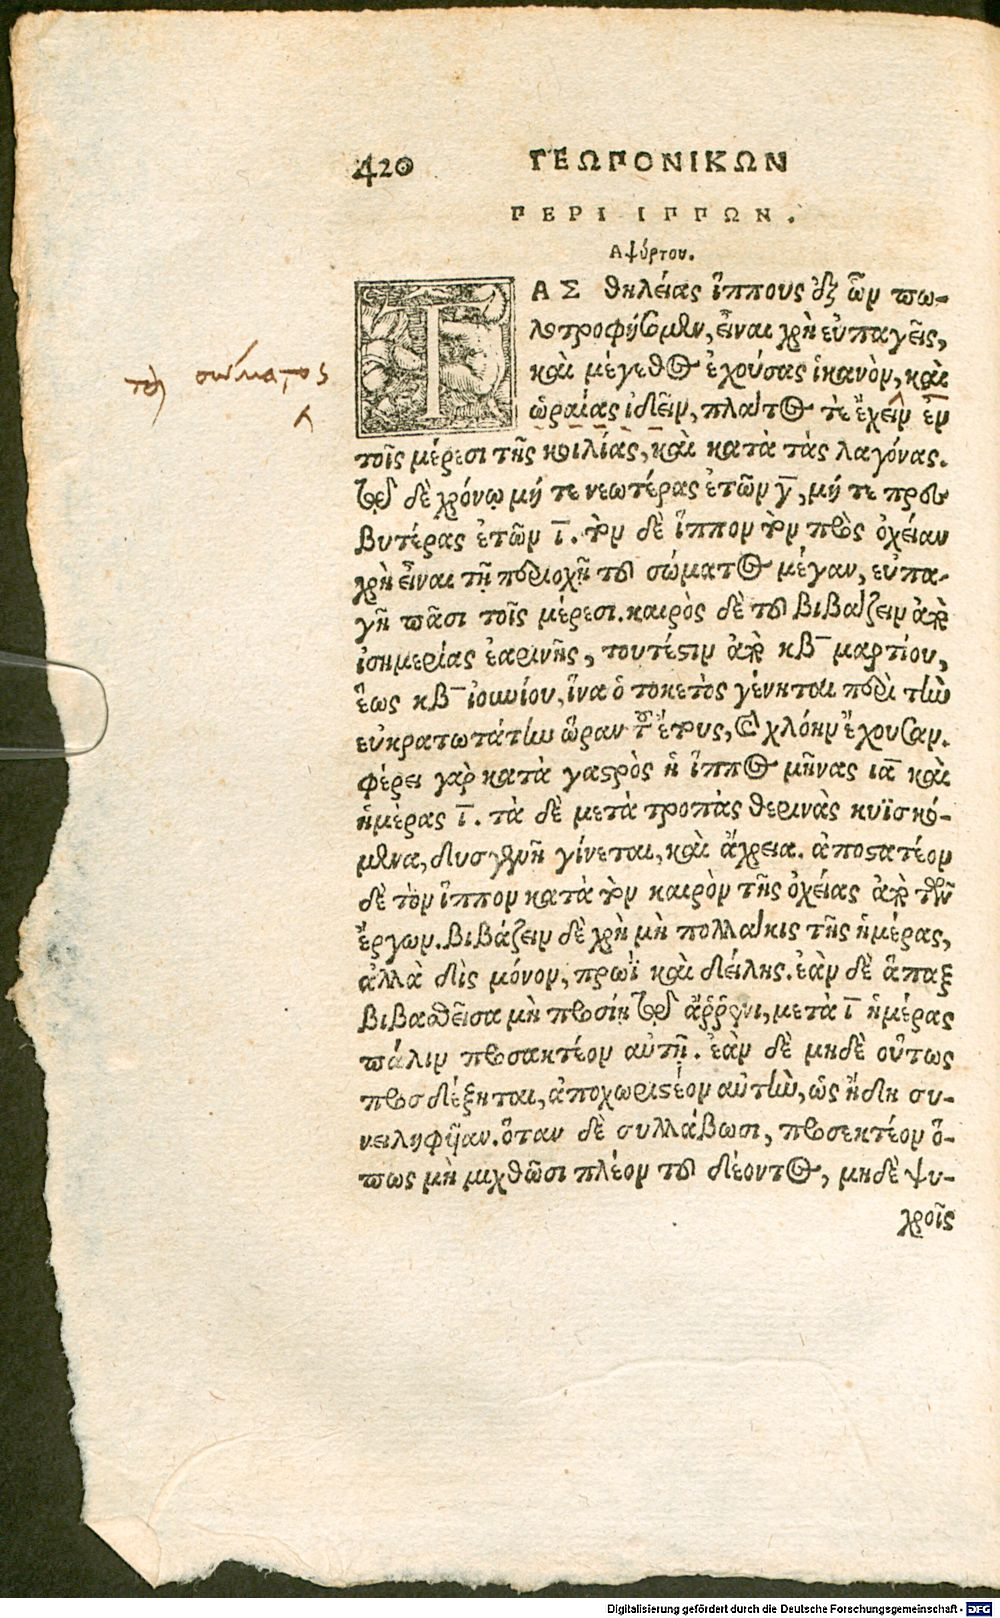 420 ΓΕΩΠΟΝΙΚΩΝ
ΠΕΡΙ ΙΠΠΩΝ.
Αψύρτου.
ΤΑΣ θηλείας ἵππους ἐξ ὧν πω-
λοτροφήσομεν, εἶναι χρὴ εὐπαγεῖς,
καὶ μέγεθος ἐχούσας ἱκανὸν, καὶ
τοῦ σώματος
ὡραίας ἰδεῖν, πλάτος τε ἔχειν ἐν
τοῖς μέρεσι τῆς κοιλίας, καὶ κατὰ τὰς λαγόνας.
τῷ δὲ χρόνῳ μή τε νεωτέρας ἐτῶν γ̅, μή τε πρεσ
βυτέρας ἐτῶν ι̅. τὸν δὲ ἵππον τὸν πρὸς ὀχείαν
χρὴ εἶναι τῇ περιοχῇ τοῦ σώματος μέγαν, εὐπα-
γῆ πᾶσι τοῖς μέρεσι. καιρὸς δὲ τοῦ βιβάζειν ἀπὸ
ἰσημερίας ἐαρινῆς, τουτέστιν ἀπὸ κβ̅ μαρτίου,
ἕως κβ̅ ἰουνίου, ἵνα ὁ τοκετὸς γένηται περὶ τὴν
εὐκρατωτάτην ὥραν τοῦ ἔτους, καὶ χλόην ἔχουσαν.
φέρει γὰρ κατὰ γαστρὸς ἡ ἵππος μῆνας ια̅ καὶ
ἡμέρας ι̅. τὰ δὲ μετὰ τροπὰς θερινὰς κυϊσκό-
μενα, δυσγενῆ γίνεται, καὶ ἄχρεια. ἀποστατέον
δὲ τὸν ἵππον κατὰ τὸν καιρὸν τῆς ὀχείας ἀπὸ τῶν
ἔργων. βιβάζειν δὲ χρὴ μὴ πολλάκις τῆς ἡμέρας,
ἀλλὰ δὶς μόνον, πρωῒ καὶ δείλης. ἐὰν δὲ ἅπαξ
βιβασθεῖσα μὴ προσίῃ τῷ ἄῤῥενι, μετὰ ι̅ ἡμέρας
πάλιν προσακτέον αὐτῇ. ἐὰν δὲ μηδὲ οὕτως
προσδέξηται, ἀποχωριστέον αὐτὴν, ὡς ἤδη συ-
νειληφῦιαν. ὅταν δὲ συλλάβωσι, προσεκτέον ὅ-
πως μὴ μιχθῶσι πλέον τοῦ δέοντος, μηδὲ ψυ-
χροῖς
Digitalisierung gefördert durch die Deutsche Forschungsgemeinschaft - DFG